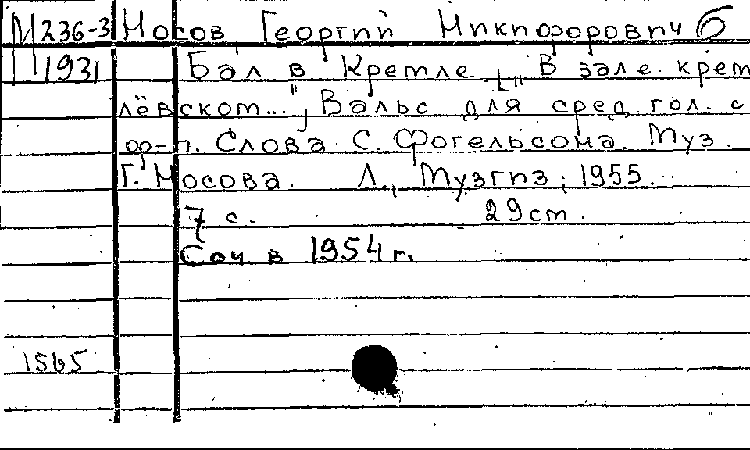 М236-3 Носов, Георгий Никифорович б
1931 Бал в Кремле ["В зале крем
лёвском..."], Вальс для сред. гол. с
ф-п. Слова С. Фогельсона. Муз.
Г. Носова. Л., Музгиз, 1955.
7 с. 29 cm.
Соч в 1954 г.
1565